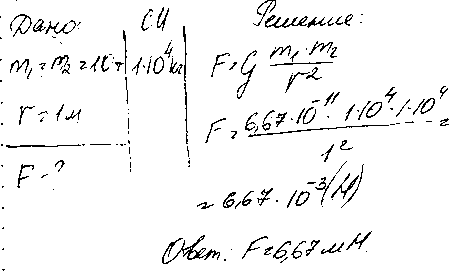 Дано:
m₁ = m₂ = 10 т
r = 1 м
F - ?
СИ
1·10⁴ кг
Решение:
F = G m₁·m₂ / r²
F = 6,67·10⁻¹¹·1·10⁴·1·10⁴ / 1² =
= 6,67·10⁻³ (Н)
Ответ: F = 6,67 мН.